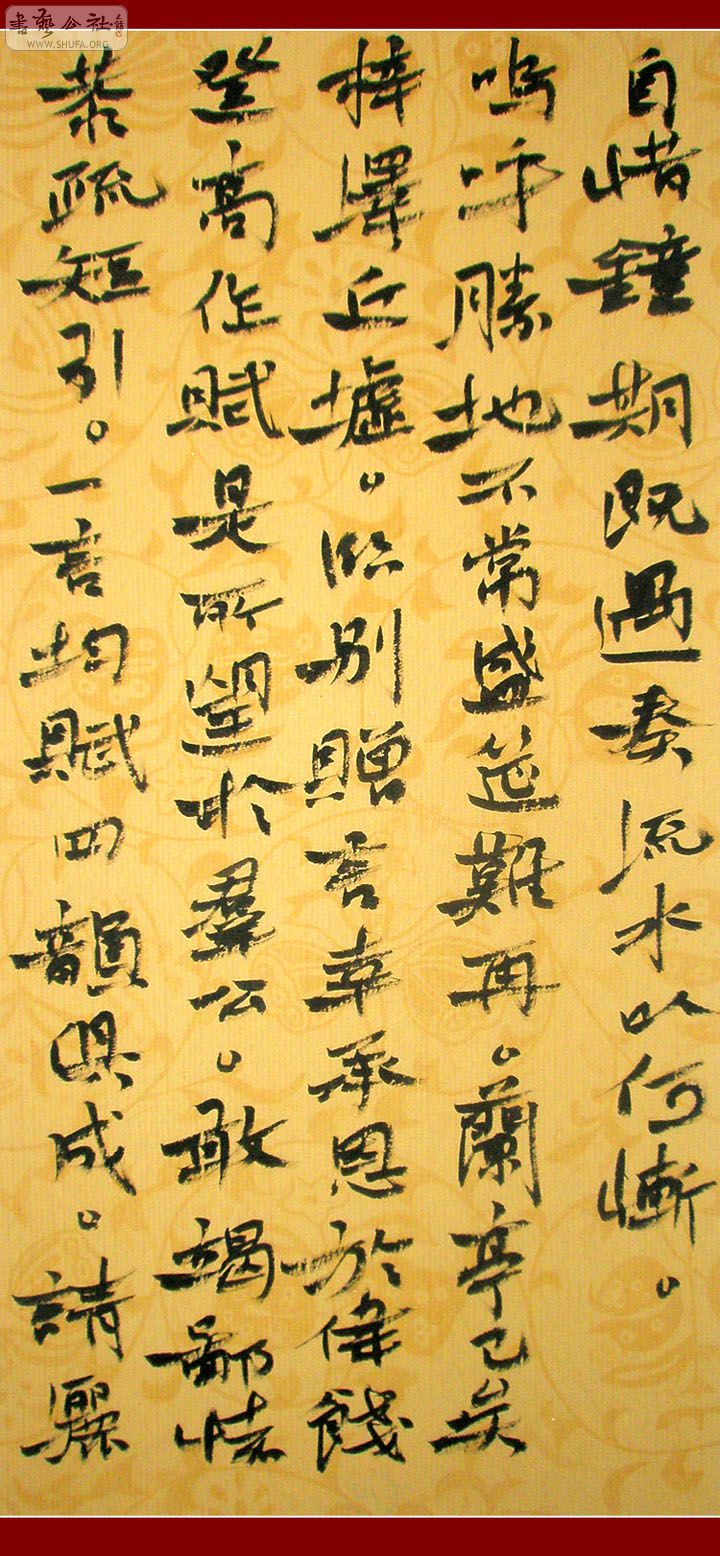 自惜鐘期既遇奏流水以何慚。
嗚呼勝地不常盛筵難再。蘭亭已矣
梓澤丘墟。臨別贈言幸承恩於偉餞
登高作賦是所望於羣公。敢竭鄙懷
恭疏短引。一言均賦四韻俱成。請灑
書藝公社
WWW.SHUFA.ORG